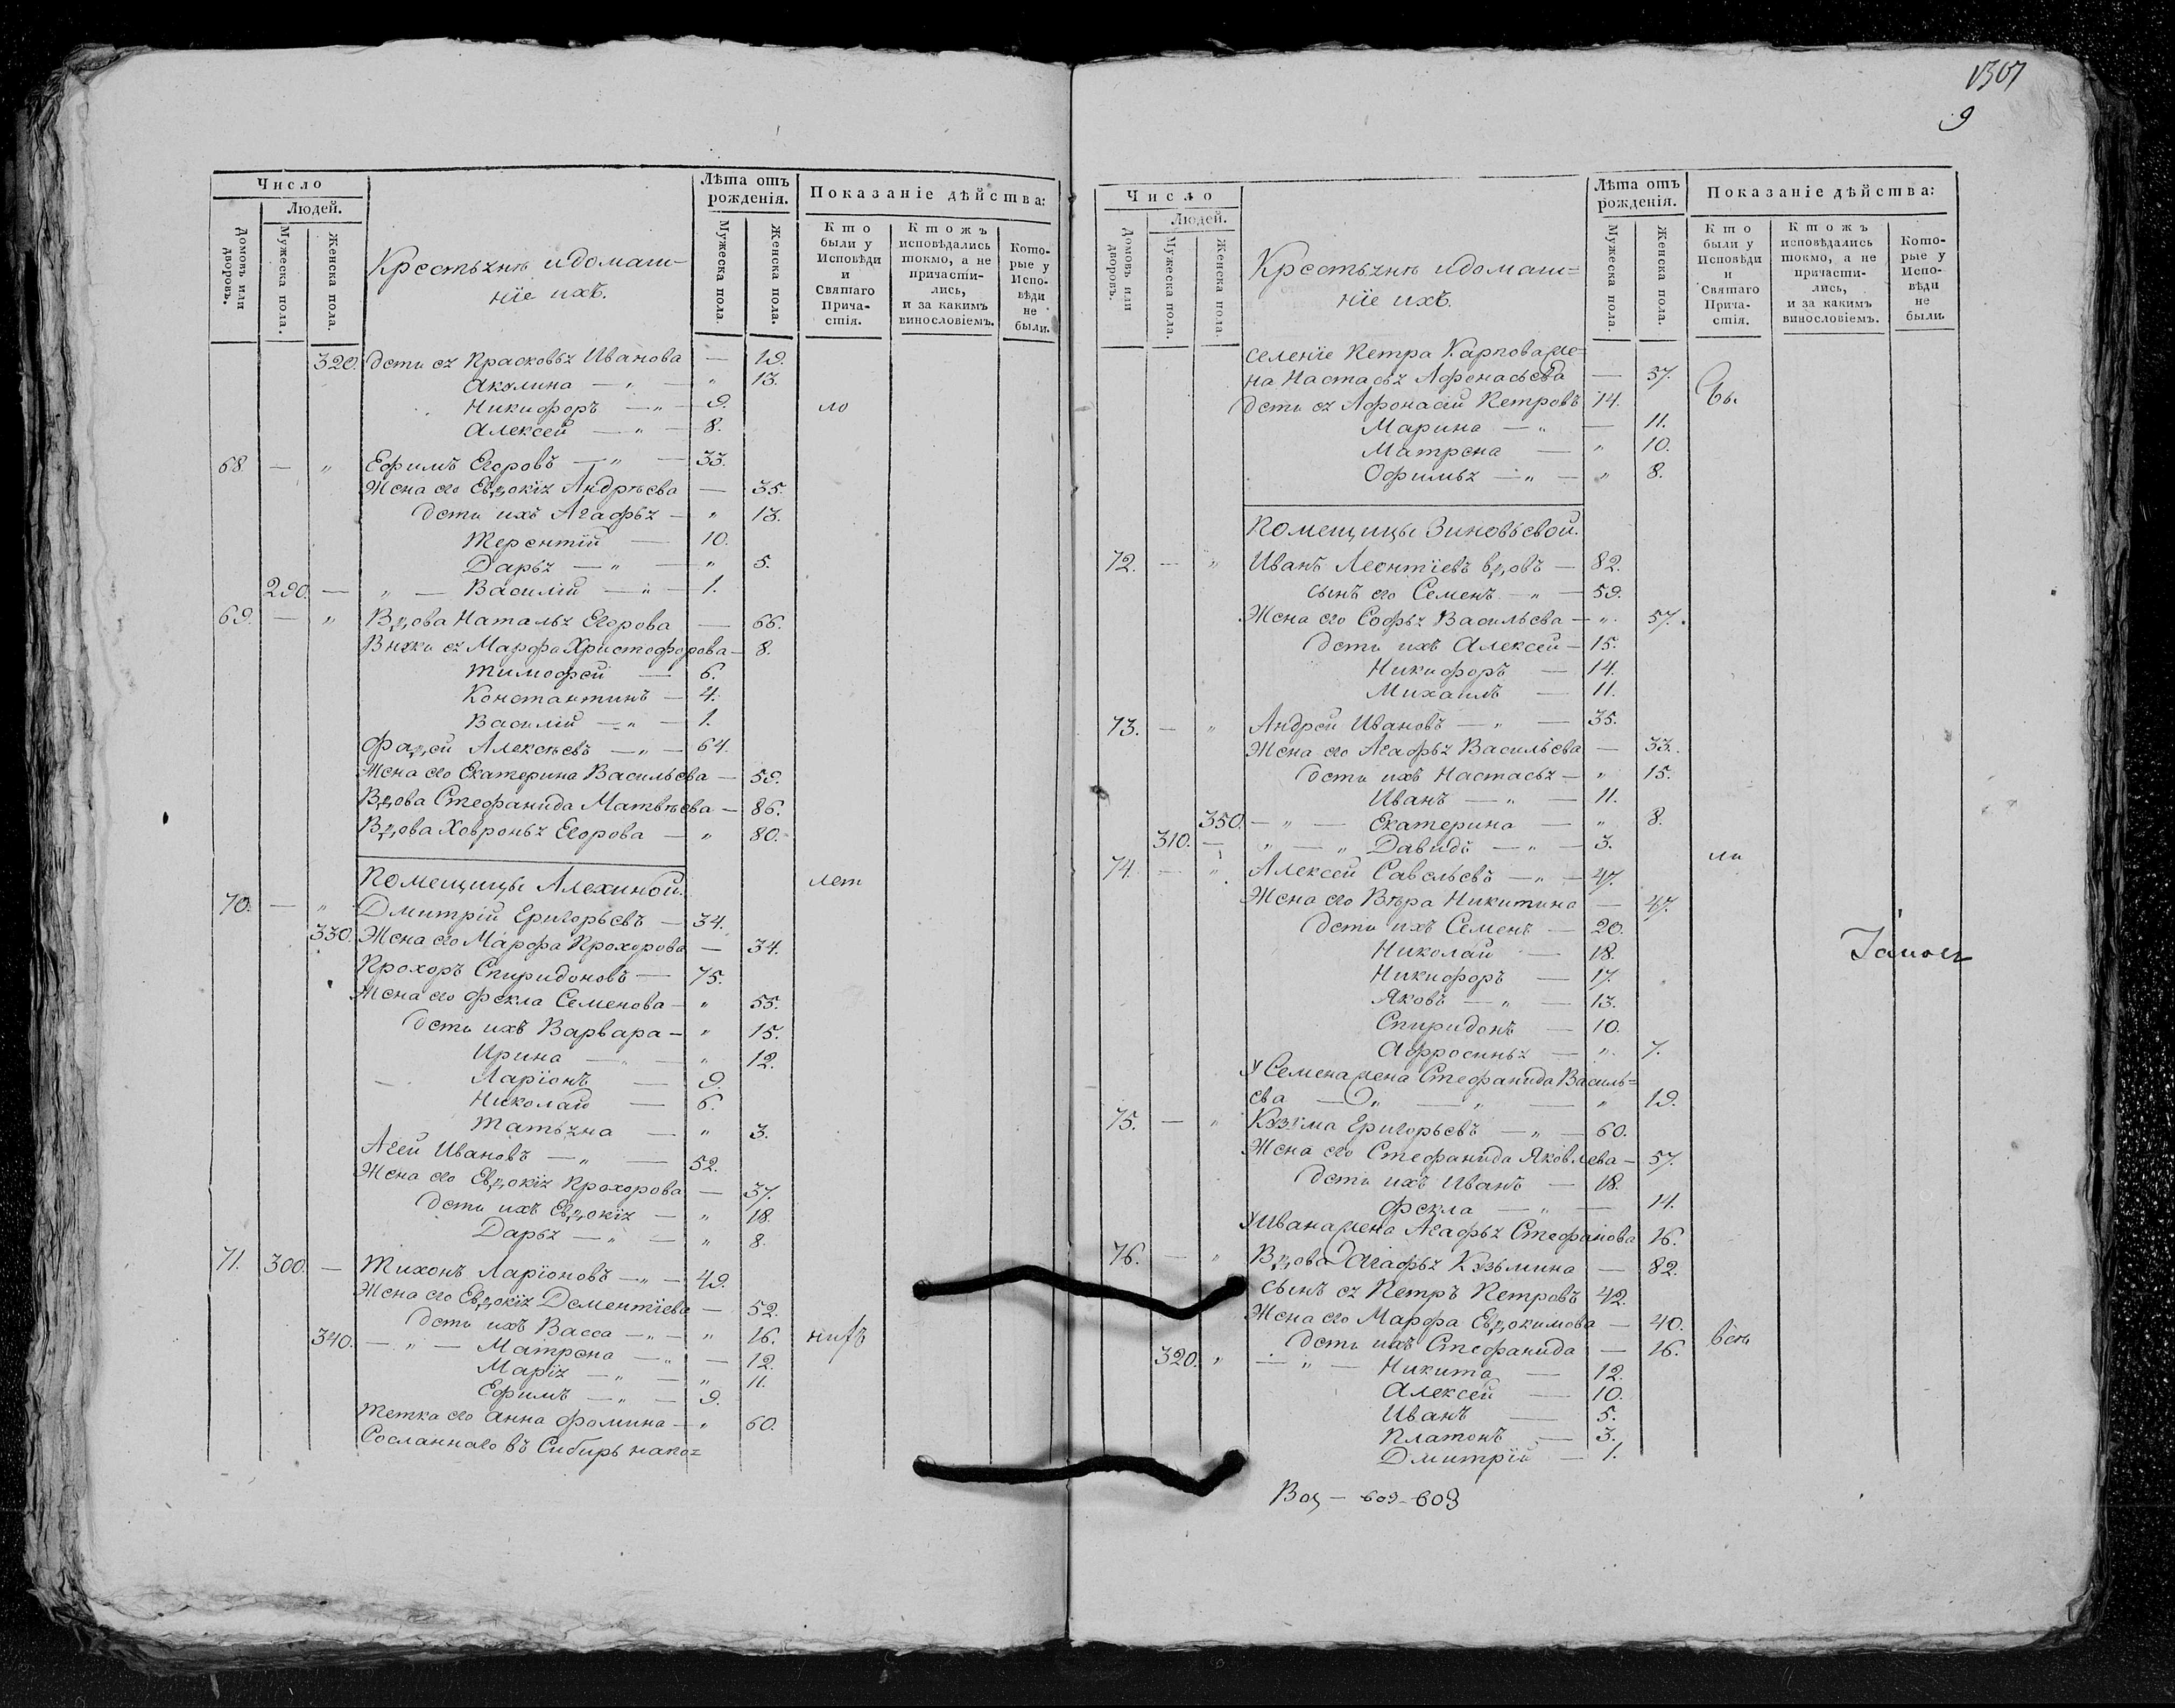 1307
9
Число
Людей.
Домовъ или дворовъ.
Мужеска пола.
Женска пола.
Крестьянѣ и домаш-
ніе ихъ.
Лѣта отъ рожденія.
Мужеска пола.
Женска пола.
Показаніе дѣйства:
Кто были у Исповѣди и Святаго Прича-стія.
Ктожъ исповѣдались токмо, а не причасти-лись, и за какимъ винословіемъ.
Кото-рые у Испо-вѣди не были.
320. Дети ея Прасковья Иванова — 19.
Акулина — „ — „ 13.
Никифоръ — „ — 9. ло
Алексей — „ — 8.
68. — „ Ефимъ Егоровъ — „ — 33.
Жена его Евдокія Андрѣева — 35.
Дети ихъ Агафья — „ 13.
Терентій — 10.
Дарья — „ — „ 5.
290. — „ — Василій — „ — 1.
69. — „ Вдова Наталья Егорова — 66.
Внуки ея Марфа Христофорова — 8.
Тимофей — 6.
Константинъ — 4.
Василій — „ — 1.
Фадей Алексѣевъ — „ — 64.
Жена его Екатерина Васильева — 59.
Вдова Стефанида Матвѣева — 86.
Вдова Ховронья Егорова — „ 80.
Помещицы Алехиной. лет
70. — „ Дмитрій Григорьевъ — 34.
330. Жена его Марфа Прохорова — 34.
Прохоръ Спиридоновъ — 75.
Жена его Фекла Семенова — „ 55.
Дети ихъ Варвара — „ 15.
Ирина — „ — „ 12.
Ларіонъ — 9.
Николай — 6.
Татьяна — „ 3.
Агей Ивановъ — „ — 52.
Жена его Евдокія Прохорова — 37.
Дети ихъ Евдокія — „ 18.
Дарья — „ — „ 8.
71. 300. — Тихонъ Ларіоновъ — „ — 49.
Жена его Евдокія Дементіева — 52.
Дети ихъ Васса — „ — „ 16. нихъ
340. — „ — Матрена — „ — 12.
Марія — „ — „ 11.
Ефимъ — „ — 9.
Тетка его Анна Фомина — „ 60.
Сосланнаго въ Сибирь напо=
Число
Людей.
Домовъ или дворовъ.
Мужеска пола.
Женска пола
Крестьянѣ и домаш=
ніе ихъ.
Лѣта отъ рожденія.
Мужеска пола.
Женска пола.
Показаніе дѣйства:
Кто были у Исповѣди и Святаго Прича-стія.
Ктожъ исповѣдались токмо, а не причасти-лись, и за какимъ винословіемъ.
Кото-рые у Испо-вѣди не были.
селеніе Петра Карпова же=
на Настасья Афонасьева — 37.
Дети ея Афонасій Петровъ 14. Бы.
Марина — „ — 11.
Матрена — „ 10.
Офимья — „ — „ 8.
Помещицы Зиновьевой.
72. — „ Иванъ Леонтіевъ вдовъ — 82.
Сынъ его Семенъ — „ — 59.
Жена его Софья Васильева — „ 57.
Дети ихъ Алексей — 15.
Никифоръ — 14.
Михаилъ — 11.
73. — „ Андрей Ивановъ — „ — 35.
Жена его Агафья Васильева — 33.
Дети ихъ Настасья — „ 15.
Иванъ — „ — 11.
350. — „ — Екатерина — „ 8.
310. — „ — „ Давидъ — „ — 3.
74. — „ Алексей Савельевъ — „ — 47. ли
Жена его Вѣра Никитина — 47.
Дети ихъ Семенъ — 20.
Николай — 18.
Никифоръ — 17.
Яковъ — „ — 13.
Спиридонъ — 10.
Афросинья — „ 7.
У Семена жена Стефанида Василь=
ева — „ — „ — „ 19.
75. — „ Козьма Григорьевъ — „ — 60.
Жена его Стефанида Яковлева — 57.
Дети ихъ Иванъ — 18.
Фекла — „ — 14.
У Ивана жена Агафья Стефанова 16.
76. — „ Вдова Агафья Козьмина — 82.
Сынъ ея Петръ Петровъ 42.
Жена его Марфа Евдокимова — 40.
Дети ихъ Стефанида — 16. всѣ
320. „ — „ — Никита — 12.
Алексей — 10.
Иванъ — 5.
Платонъ — 3.
Дмитрій — 1.
609-609